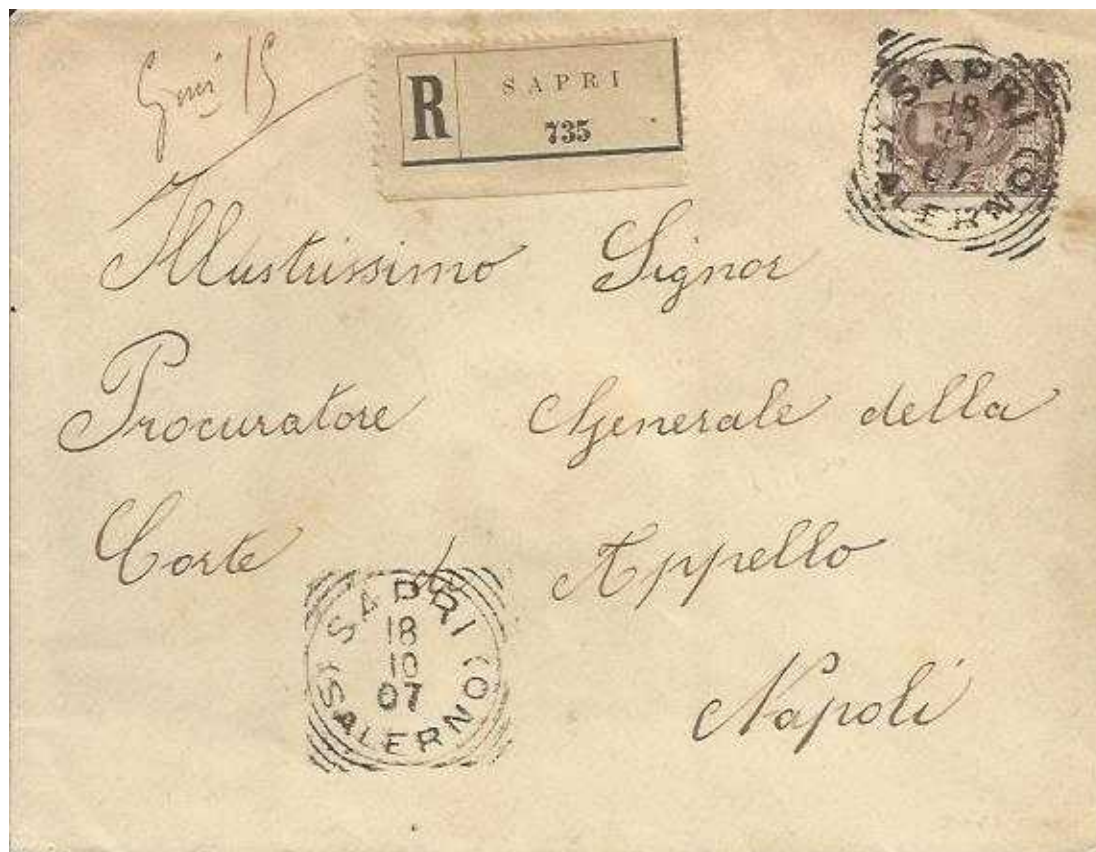 15
R
SAPRI
735
SAPRI
18
07
(SALERNO)
Illustrissimo Signor
Procuratore Generale della
Corte di Appello
SAPRI
18
10
07
(SALERNO)
Napoli